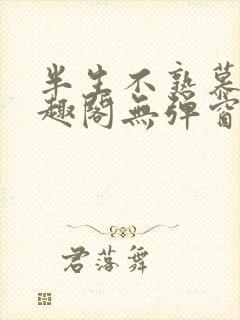 半生不熟慕
趣阁無弹窗
君落舞